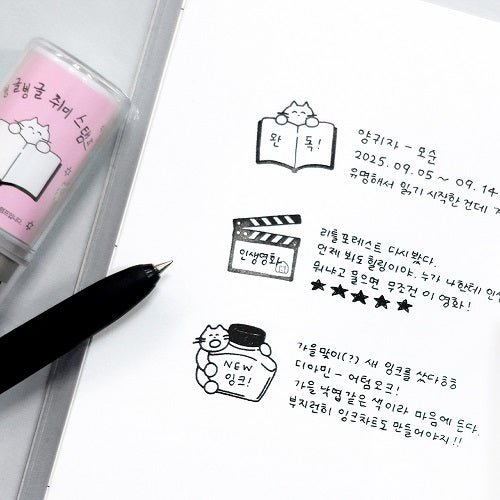 글뻥글 취미 스탬프
완 독!
양귀자 - 모순
2025.09.05 ~ 09.14
유명해서 읽기 시작한건데
인생영화
리틀포레스트 다시봤다.
언제 봐도 힐링이야. 누가 나한테 인생
뭐냐고 물으면 무조건 이 영화!
★★★★★
NEW
잉크!
가을맞이(?) 새 잉크를 샀다ㅎㅎ
디아민 - 어텀오크!
가을 낙엽같은 색이라 마음에 든다.
부지런히 잉크차트도 만들어야지!!